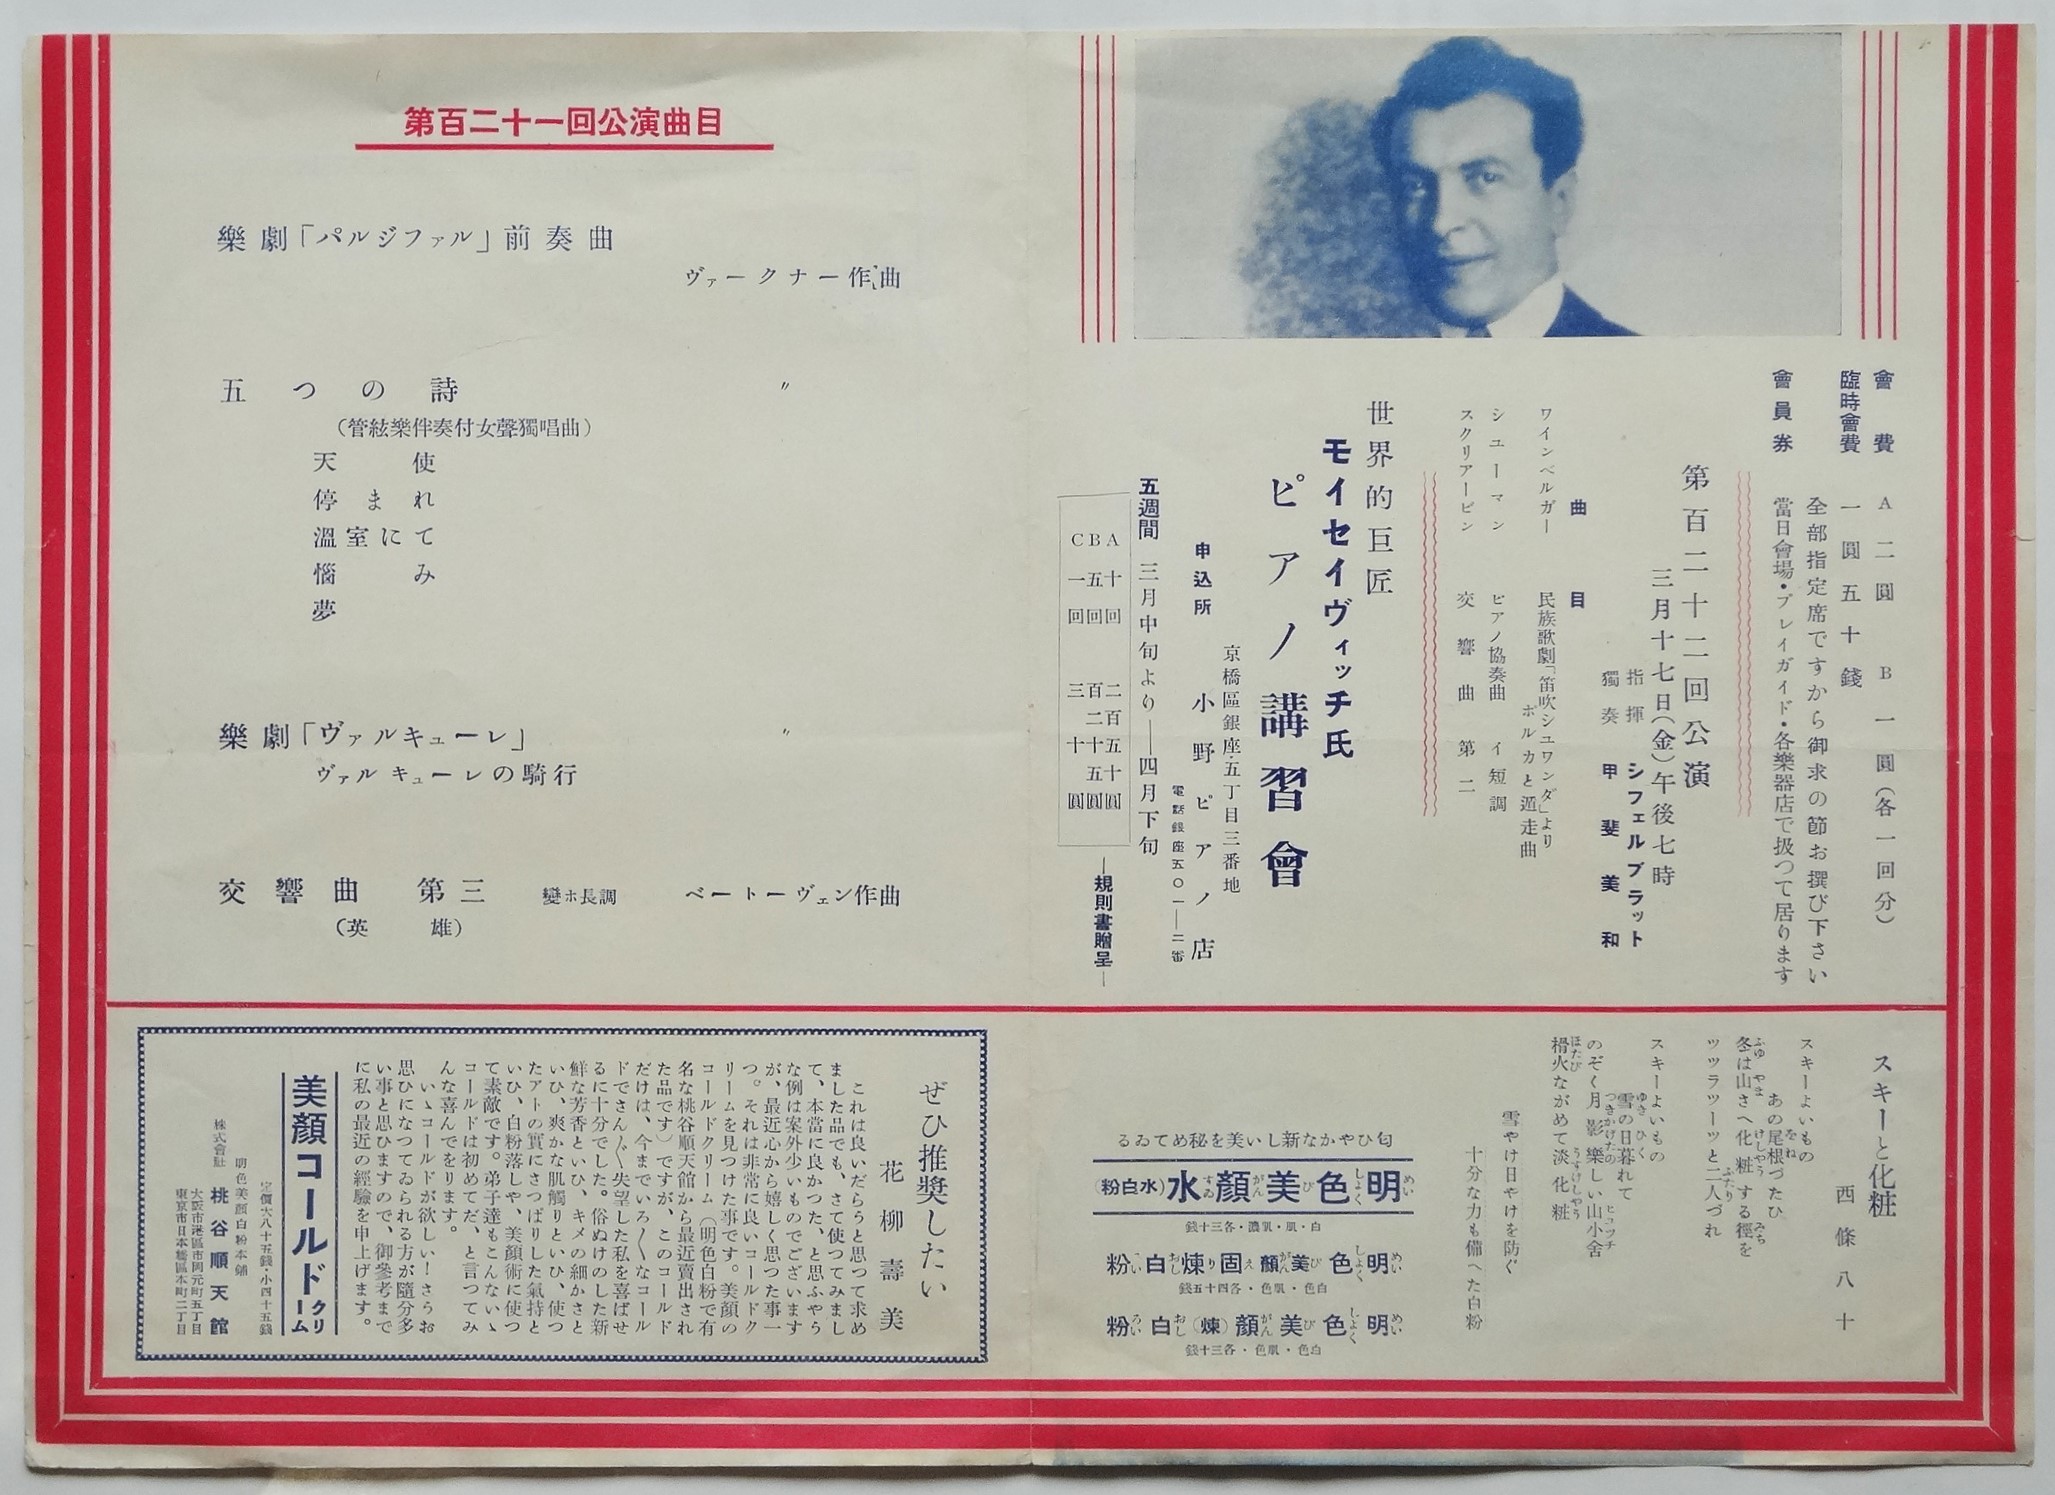 第百二十一回公演曲目
樂劇「パルジファル」前奏曲
ヴァークナー作曲
五つの詩 〃
(管絃樂伴奏付女聲獨唱曲)
天使
停まれ
溫室にて
惱み
夢
樂劇「ヴァルキューレ」 〃
ヴァルキューレの騎行
交響曲 第三 變ホ長調 ベートーヴェン作曲
(英雄)
會費 A 二圓 B 一圓(各一回分)
臨時會費 一圓五十錢
全部指定席ですから御求の節お撰び下さい
會員券 當日會場・プレイガイド・各樂器店で扱つて居ります
第百二十二回公演
三月十七日(金)午後七時
指揮 シフェルブラット
獨奏 甲斐美和
曲目
ワインベルガー 民族歌劇「笛吹シユワンダ」より
ポルカと遁走曲
シユーマン ピアノ協奏曲 イ短調
スクリアービン 交響曲第二
世界的巨匠
モイセイヴィッチ氏
ピアノ講習會
京橋區銀座・五丁目三番地
申込所 小野ピアノ店
電話銀座五〇一一―二番
五週間 三月中旬より―四月下旬
A 十回 二百五十圓
B 五回 百二十五圓
C 一回 三十圓
―規則書贈呈―
スキーと化粧
西條八十
スキーよいもの
あの尾根づたひ
冬は山さへ化粧する徑を
ツツラツーツと二人づれ
スキーよいもの
雪の日暮れて
のぞく月影樂しい山小舍
榾火ながめて淡化粧
雪やけ日やけを防ぐ
十分な力も備へた白粉
匂ひやかな新しい美を秘めてゐる
明色美顏水(水白粉)
白・肌・濃肌・各三十錢
明色美顏固煉白粉
白色・肌色・各四十五錢
明色美顏(煉)白粉
白色・肌色・各三十錢
ぜひ推奬したい
花柳壽美
これは良いだらうと思つて求め
ました品でも、さて使つてみまし
て、本當に良かつた、と思ふやう
な例は案外少いものでございます
が、最近心から嬉しく思つた事一
つ。それは非常に良いコールドク
リームを見つけた事です。美顏の
コールドクリーム(明色白粉で有
名な桃谷順天館から最近賣出され
た品です)ですが、このコールド
だけは、今までいろ〱なコール
ドでさん〲失望した私を喜ばせ
るに十分でした。俗ぬけのした新
鮮な芳香といひ、キメの細かさと
いひ、爽かな肌觸りといひ、使つ
たアトの實にさつぱりした氣持と
いひ、白粉落しや、美顏術に使つ
て素敵です。弟子達もこんないゝ
コールドは初めてだ、と言つてみ
んな喜んでをります。
いゝコールドが欲しい!さうお
思ひになつてゐられる方が隨分多
い事と思ひますので、御參考まで
に私の最近の經驗を申上げます。
美顏コールドクリーム
定價大八十五錢・小四十五錢
明色美顏白粉本舖
株式會社 桃谷順天館
大阪市港區市岡元町五丁目
東京市日本橋區本町二丁目